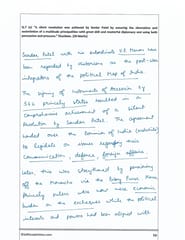 Q.7 (c) "A silent revolution was achieved by Sardar Patel by ensuring the absorption and assimilation of a multitude principalities with great skill and masterful diplomacy and using both persuasion and pressure." Elucidate. (20 Marks)
Sardar Patel with his subordinate V.P. Menon have
been regarded by historians as the post-war
integrators of the Political Map of India.
The signing of Instruments of Accession by
562 princely states resulted in a
comprehensive achievement of a silent
Revolution by Sardar Patel. The agreement
handed over the Dominion of India (authority)
to legislate on issues regarding
Communication, defence, foreign affairs.
Later, this was strengthened by
off the Monarchs via the Privy Purse
Princely rulers who now were economic
burden on the exchequer while the political
interests and powers had been aligned with